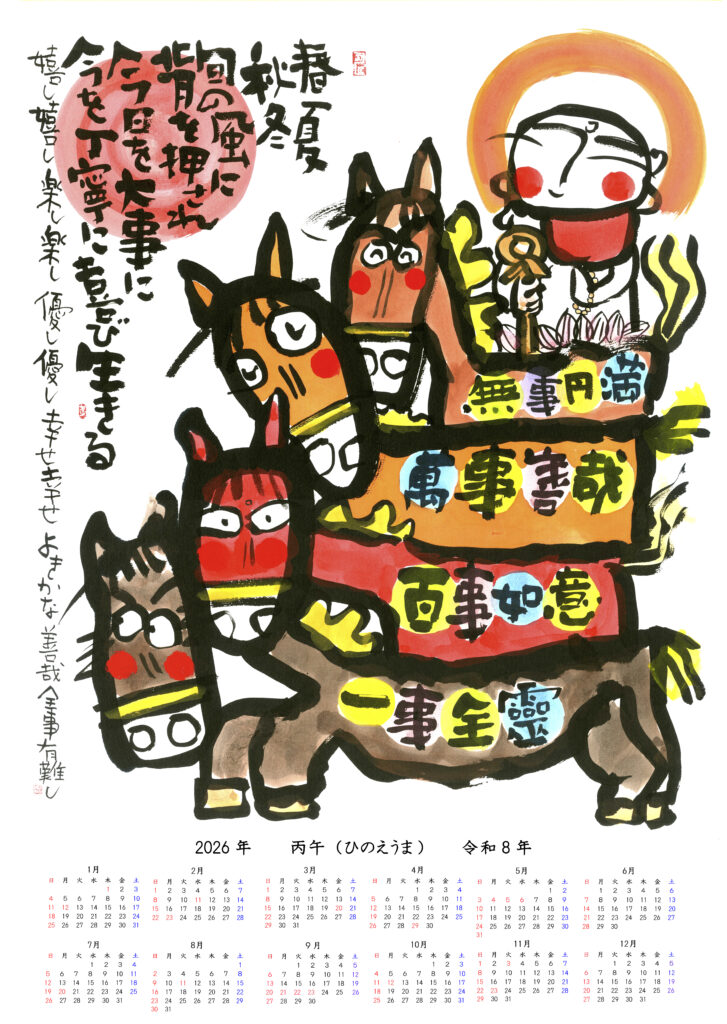 春夏
秋冬
旬の風に
背を押され
今日を大事に
今を丁寧に喜び生きる
嬉し嬉し 楽し楽し 優し優し 幸せ幸せ よきかな善哉 全事有難し
無事円満
萬事善哉
百事如意
一事全靈
2026年 丙午(ひのえうま) 令和8年
1月
日 月 火 水 木 金 土
1 2 3
4 5 6 7 8 9 10
11 12 13 14 15 16 17
18 19 20 21 22 23 24
25 26 27 28 29 30 31
2月
日 月 火 水 木 金 土
1 2 3 4 5 6 7
8 9 10 11 12 13 14
15 16 17 18 19 20 21
22 23 24 25 26 27 28
3月
日 月 火 水 木 金 土
1 2 3 4 5 6 7
8 9 10 11 12 13 14
15 16 17 18 19 20 21
22 23 24 25 26 27 28
29 30 31
4月
日 月 火 水 木 金 土
1 2 3 4
5 6 7 8 9 10 11
12 13 14 15 16 17 18
19 20 21 22 23 24 25
26 27 28 29 30
5月
日 月 火 水 木 金 土
1 2
3 4 5 6 7 8 9
10 11 12 13 14 15 16
17 18 19 20 21 22 23
24 25 26 27 28 29 30
31
6月
日 月 火 水 木 金 土
1 2 3 4 5 6
7 8 9 10 11 12 13
14 15 16 17 18 19 20
21 22 23 24 25 26 27
28 29 30
7月
日 月 火 水 木 金 土
1 2 3 4
5 6 7 8 9 10 11
12 13 14 15 16 17 18
19 20 21 22 23 24 25
26 27 28 29 30 31
8月
日 月 火 水 木 金 土
1
2 3 4 5 6 7 8
9 10 11 12 13 14 15
16 17 18 19 20 21 22
23 24 25 26 27 28 29
30 31
9月
日 月 火 水 木 金 土
1 2 3 4 5
6 7 8 9 10 11 12
13 14 15 16 17 18 19
20 21 22 23 24 25 26
27 28 29 30
10月
日 月 火 水 木 金 土
1 2 3
4 5 6 7 8 9 10
11 12 13 14 15 16 17
18 19 20 21 22 23 24
25 26 27 28 29 30 31
11月
日 月 火 水 木 金 土
1 2 3 4 5 6 7
8 9 10 11 12 13 14
15 16 17 18 19 20 21
22 23 24 25 26 27 28
29 30
12月
日 月 火 水 木 金 土
1 2 3 4 5
6 7 8 9 10 11 12
13 14 15 16 17 18 19
20 21 22 23 24 25 26
27 28 29 30 31